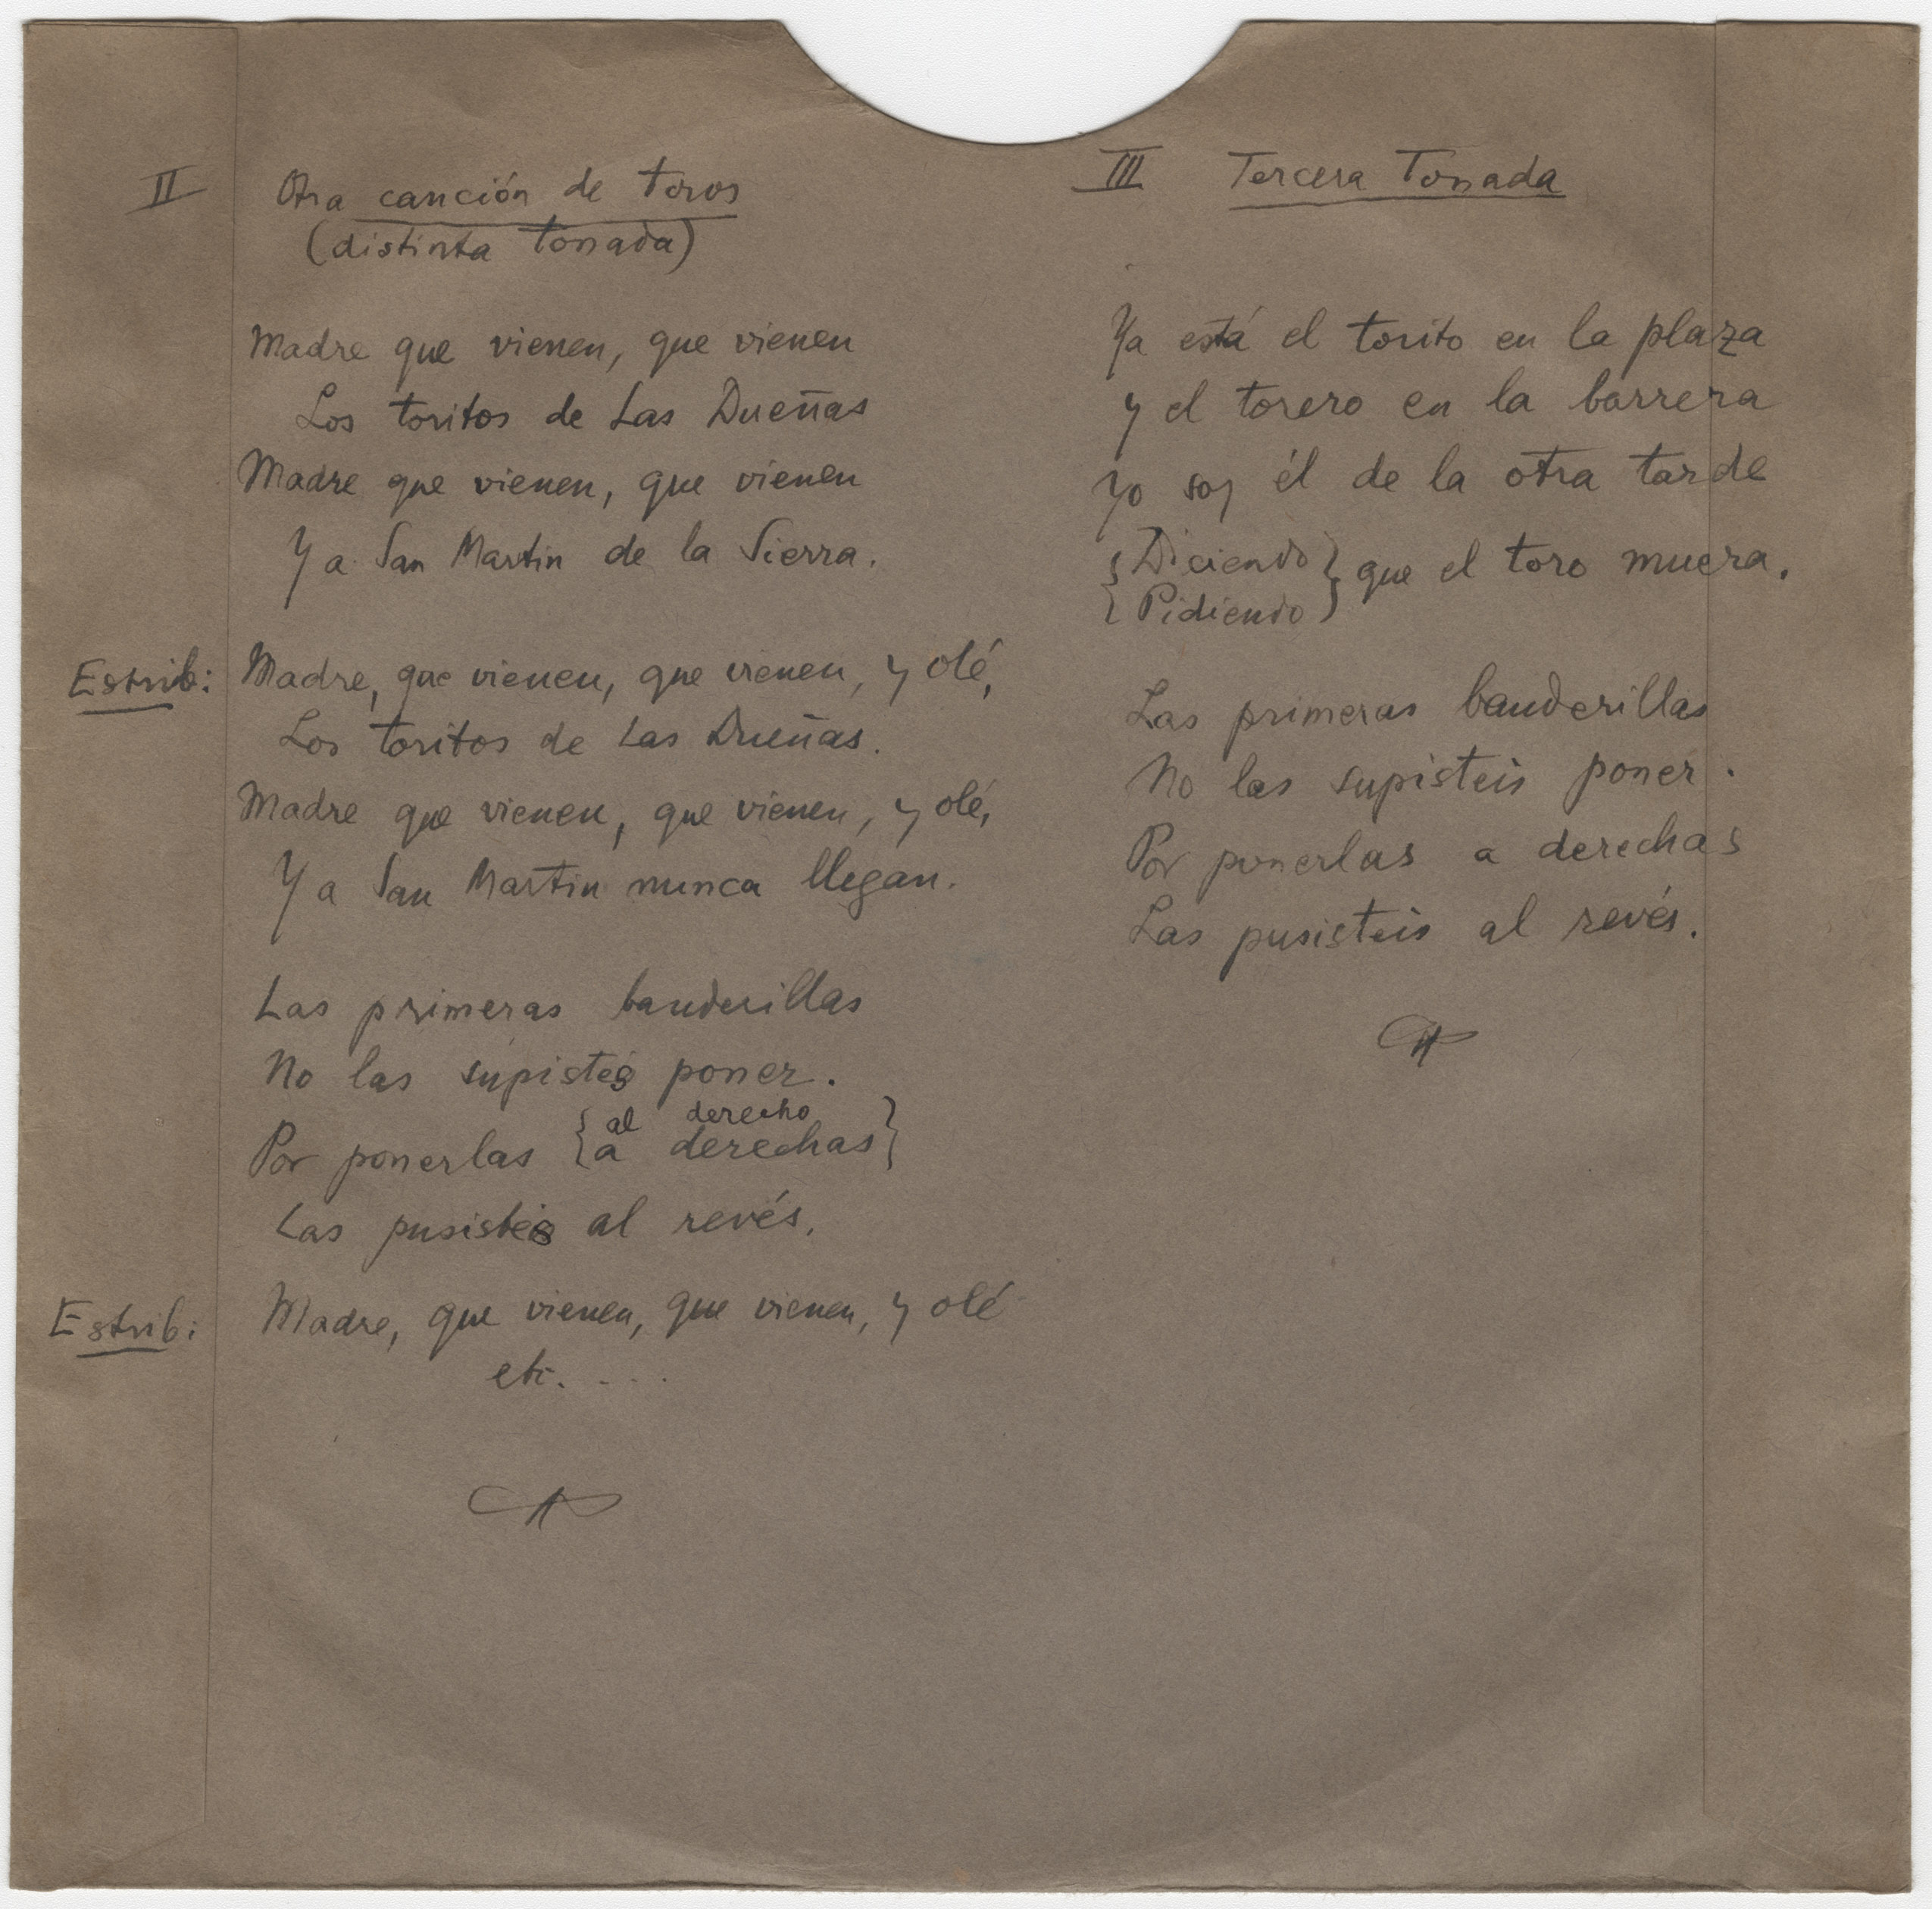 II Otra canción de toros
(distinta tonada)
Madre que vienen, que vienen
Los toritos de Las Dueñas
Madre que vienen, que vienen
Y a San Martin de la Sierra.
Estrib: Madre, que vienen, que vienen, y olé,
Los toritos de Las Dueñas.
Madre que vienen, que vienen, y olé,
Y a San Martin nunca llegan.
Las primeras banderillas
No las supisteis poner.
Por ponerlas { al derecho
a derechas }
Las pusisteis al revés.
Estrib: Madre, que vienen, que vienen, y olé
etc. . . .
III Tercera Tonada
Ya está el torito en la plaza
y el torero en la barrera
Yo soy él de la otra tarde
{ Diciendo } que el toro muera.
{ Pidiendo }
Las primeras banderillas
No las supisteis poner.
Por ponerlas a derechas
Las pusisteis al revés.